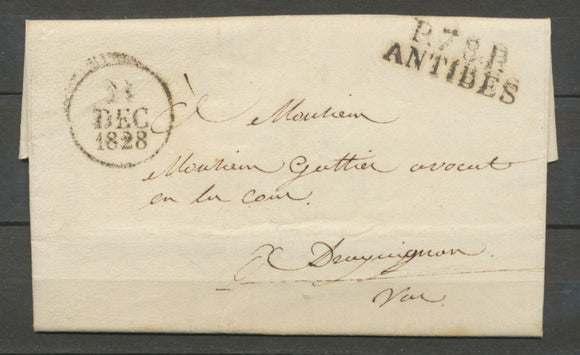 P.78.P.
ANTIBES
24
DEC
1828
A Monsieur
Monsieur Guttier avocat
en la cour.
A Draguignan.
Var.